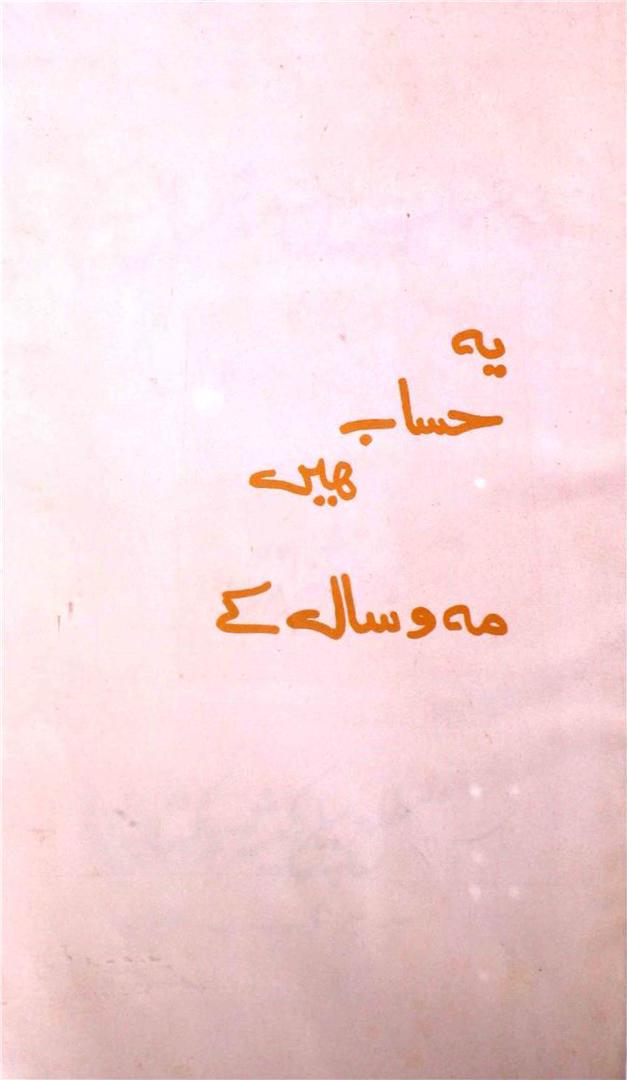 یہ
حساب
ھیں
مہ و سال کے